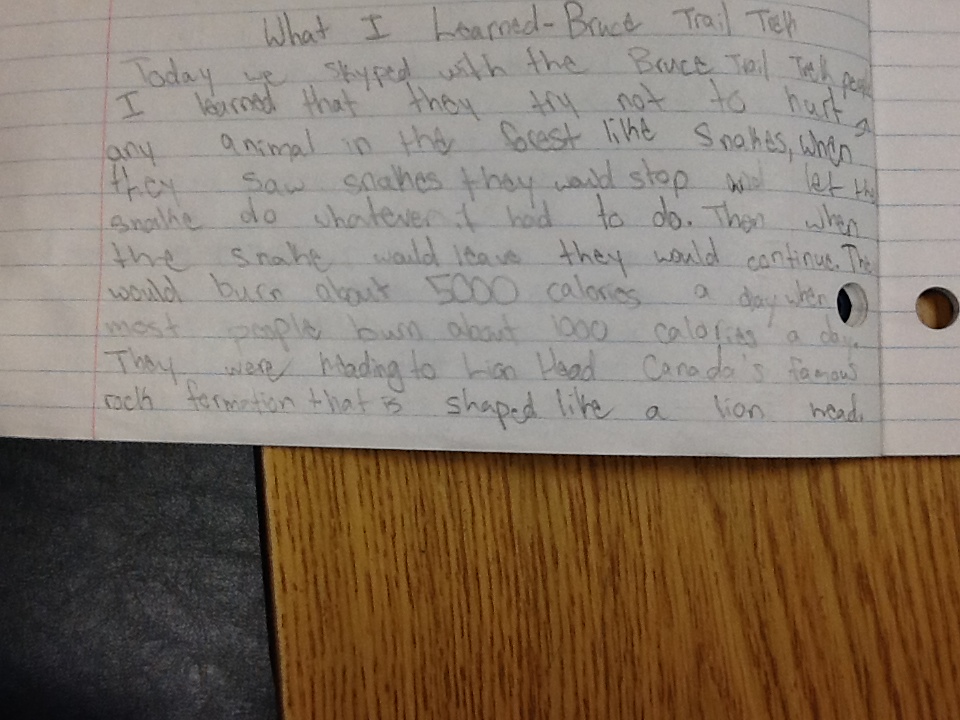 What I Learned-Bruce Trail Tek
Today we skyped with the Bruce Trail Trek people
I learned that they try not to hurt
any animal in the forest like snakes, when
they saw snakes they would stop and let the
snake do whatever it had to do. Then when
the snake would leave they would continue. The
would burn about 5000 calories a day when
most people burn about 1000 calories a day.
They were heading to Lion Head Canada's famous
rock formation that is shaped like a lion head.